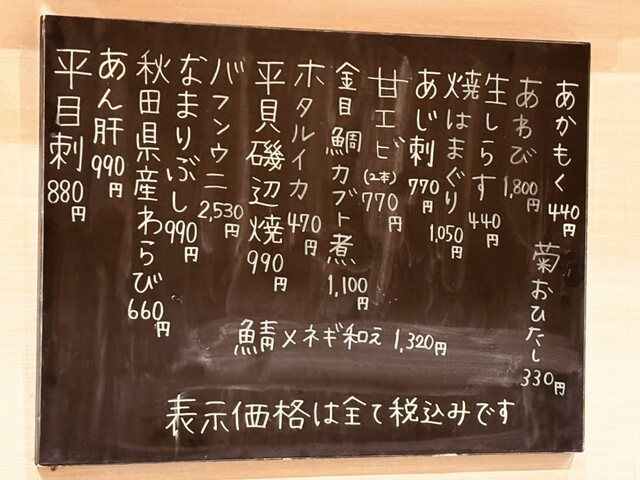 あかもく 440円
菊おひたし 330円
あわび 1,800円
生しらす 440円
焼はまぐり 1,050円
あじ刺 770円
甘エビ(2本) 770円
金目鯛カブト煮 1,100円
ホタルイカ 470円
平貝磯辺焼 990円
バフンウニ 2,530円
なまりぶし 990円
秋田県産わらび 660円
あん肝 990円
平目刺 880円
鯖〆ネギ和え 1,320円
表示価格は全て税込みです